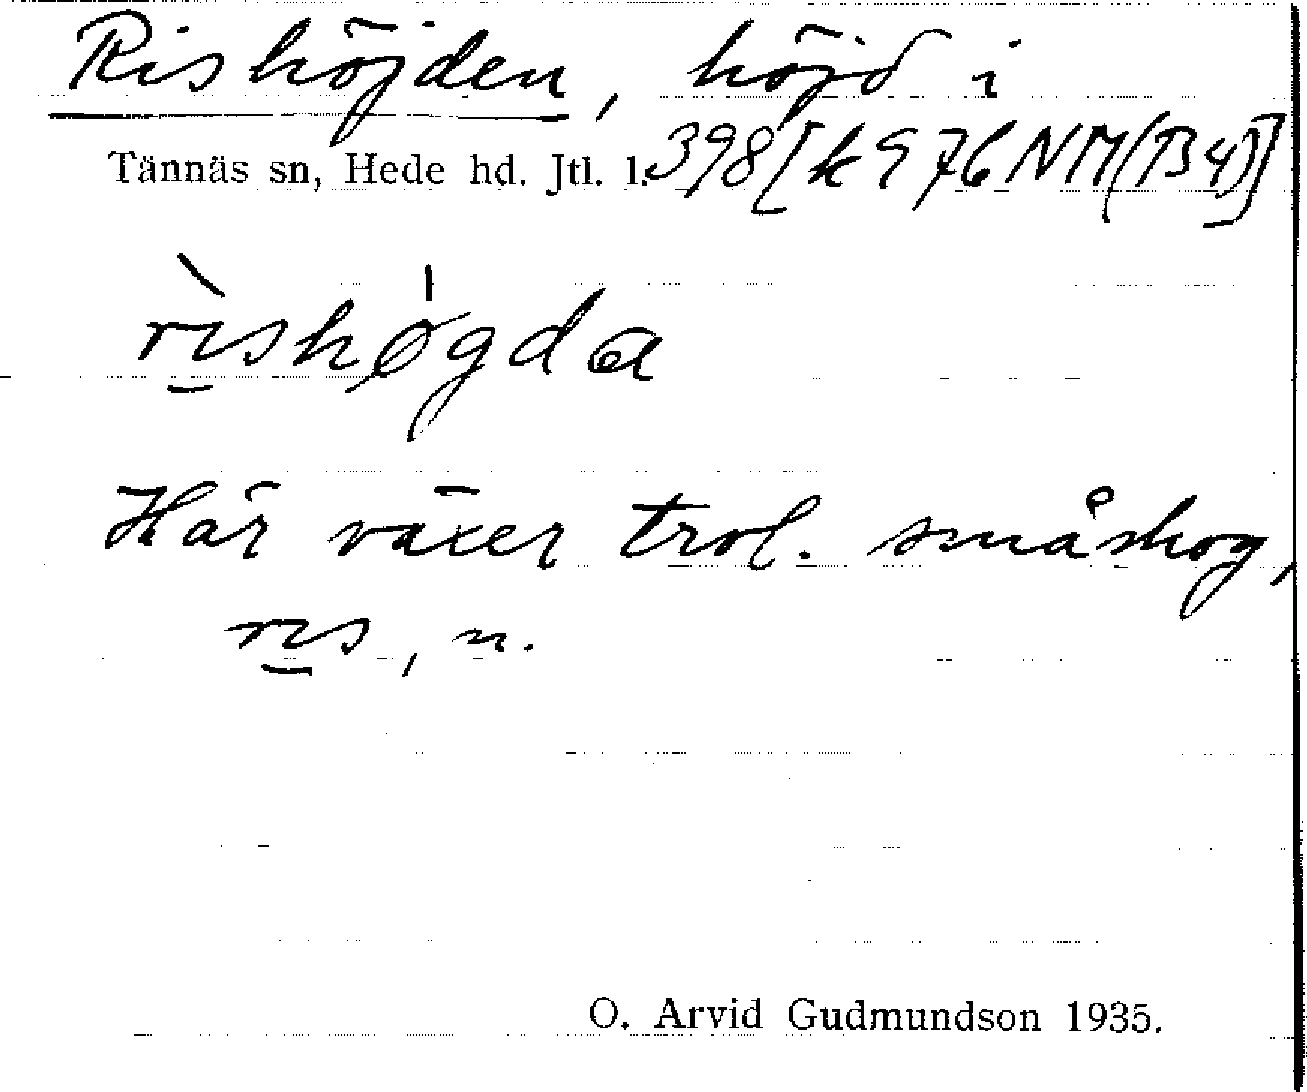 Rishöjden, höjd i
Tännäs sn, Hede hd. Jtl. l. 398 [k 976 NM (B4)]
rı̀shø̍gda
Här växer trol. småskog,
ris, n.
O. Arvid Gudmundson 1935.